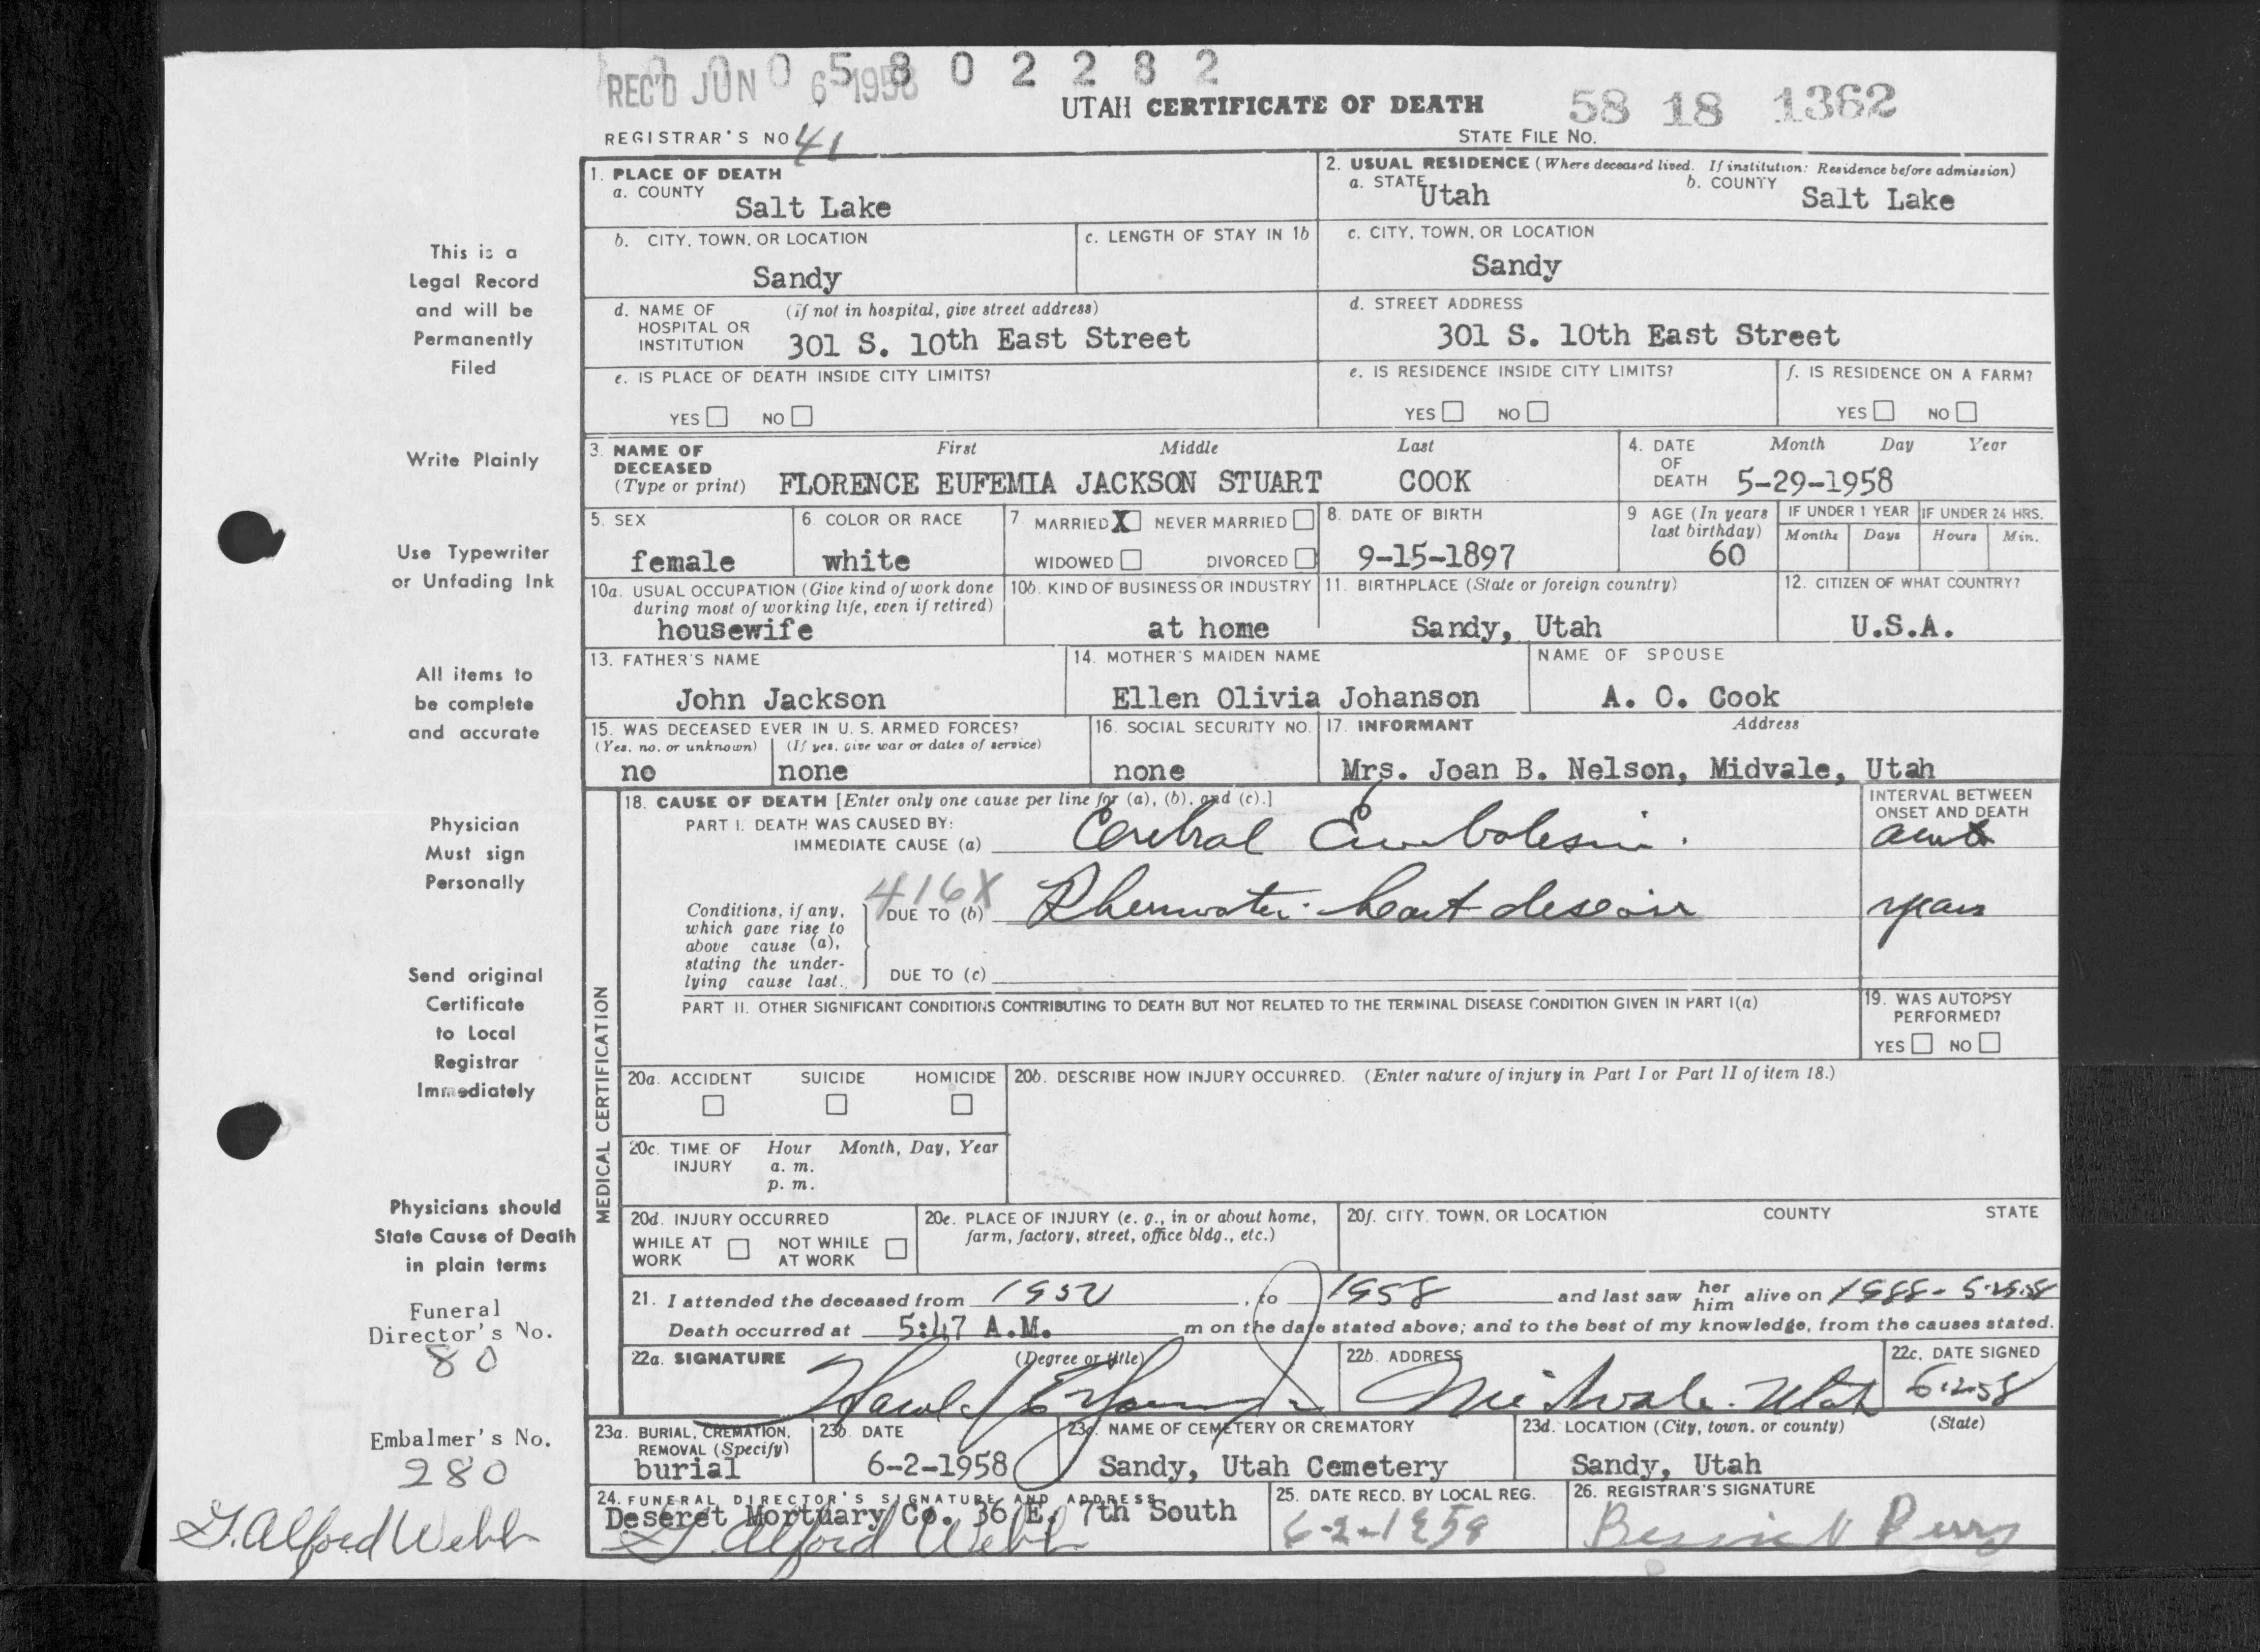 REC'D JUN 6 1958
0 5 8 0 2 2 8 2
UTAH CERTIFICATE OF DEATH
58 18 1362
REGISTRAR'S NO 41
STATE FILE NO.
1. PLACE OF DEATH
a. COUNTY
Salt Lake
2. USUAL RESIDENCE (Where deceased lived. If institution: Residence before admission)
a. STATE Utah
b. COUNTY Salt Lake
b. CITY, TOWN, OR LOCATION
Sandy
c. LENGTH OF STAY IN 1b
c. CITY, TOWN, OR LOCATION
Sandy
d. NAME OF HOSPITAL OR INSTITUTION
(If not in hospital, give street address)
301 S. 10th East Street
d. STREET ADDRESS
301 S. 10th East Street
e. IS PLACE OF DEATH INSIDE CITY LIMITS?
YES NO
e. IS RESIDENCE INSIDE CITY LIMITS?
YES NO
f. IS RESIDENCE ON A FARM?
YES NO
3. NAME OF DECEASED
(Type or print)
First Middle Last
FLORENCE EUFEMIA JACKSON STUART COOK
4. DATE OF DEATH
Month Day Year
5-29-1958
5. SEX
female
6. COLOR OR RACE
white
7. MARRIED X NEVER MARRIED
WIDOWED DIVORCED
8. DATE OF BIRTH
9-15-1897
9 AGE (In years last birthday)
60
IF UNDER 1 YEAR
Months Days
IF UNDER 24 HRS.
Hours Min.
10a. USUAL OCCUPATION (Give kind of work done during most of working life, even if retired)
housewife
10b. KIND OF BUSINESS OR INDUSTRY
at home
11. BIRTHPLACE (State or foreign country)
Sandy, Utah
12. CITIZEN OF WHAT COUNTRY?
U.S.A.
13. FATHER'S NAME
John Jackson
14. MOTHER'S MAIDEN NAME
Ellen Olivia Johanson
NAME OF SPOUSE
A. O. Cook
15. WAS DECEASED EVER IN U. S. ARMED FORCES?
(Yes, no, or unknown) (If yes, give war or dates of service)
no none
16. SOCIAL SECURITY NO.
none
17. INFORMANT Address
Mrs. Joan B. Nelson, Midvale, Utah
MEDICAL CERTIFICATION
18. CAUSE OF DEATH [Enter only one cause per line for (a), (b), and (c).]
PART I. DEATH WAS CAUSED BY:
IMMEDIATE CAUSE (a) Cerebral Embolism.
INTERVAL BETWEEN ONSET AND DEATH
Conditions, if any, which gave rise to above cause (a), stating the underlying cause last.
416X
DUE TO (b) Rheumatic heart disease
years
DUE TO (c)
PART II. OTHER SIGNIFICANT CONDITIONS CONTRIBUTING TO DEATH BUT NOT RELATED TO THE TERMINAL DISEASE CONDITION GIVEN IN PART I(a)
19. WAS AUTOPSY PERFORMED?
YES NO
20a. ACCIDENT SUICIDE HOMICIDE
20b. DESCRIBE HOW INJURY OCCURRED. (Enter nature of injury in Part I or Part II of item 18.)
20c. TIME OF INJURY
Hour Month, Day, Year
a. m.
p. m.
20d. INJURY OCCURRED
WHILE AT WORK
NOT WHILE AT WORK
20e. PLACE OF INJURY (e. g., in or about home, farm, factory, street, office bldg., etc.)
20f. CITY, TOWN, OR LOCATION COUNTY STATE
21. I attended the deceased from 1952, to 1958 and last saw her him alive on
Death occurred at 5:47 A.M. m on the date stated above; and to the best of my knowledge, from the causes stated.
22a. SIGNATURE (Degree or title)
Harold
22b. ADDRESS
Midvale. Utah
22c. DATE SIGNED
6-2-58
23a. BURIAL, CREMATION, REMOVAL (Specify)
burial
23b. DATE
6-2-1958
23c. NAME OF CEMETERY OR CREMATORY
Sandy, Utah Cemetery
23d. LOCATION (City, town, or county) (State)
Sandy, Utah
24. FUNERAL DIRECTOR'S SIGNATURE AND ADDRESS
Deseret Mortuary Co. 36 E. 7th South
G. Alford Webb
25. DATE RECD. BY LOCAL REG.
6-2-1958
26. REGISTRAR'S SIGNATURE
Perry
This is a
Legal Record
and will be
Permanently
Filed
Write Plainly
Use Typewriter
or Unfading Ink
All items to
be complete
and accurate
Physician
Must sign
Personally
Send original
Certificate
to Local
Registrar
Immediately
Physicians should
State Cause of Death
in plain terms
Funeral
Director's No.
80
Embalmer's No.
280
G. Alford Webb